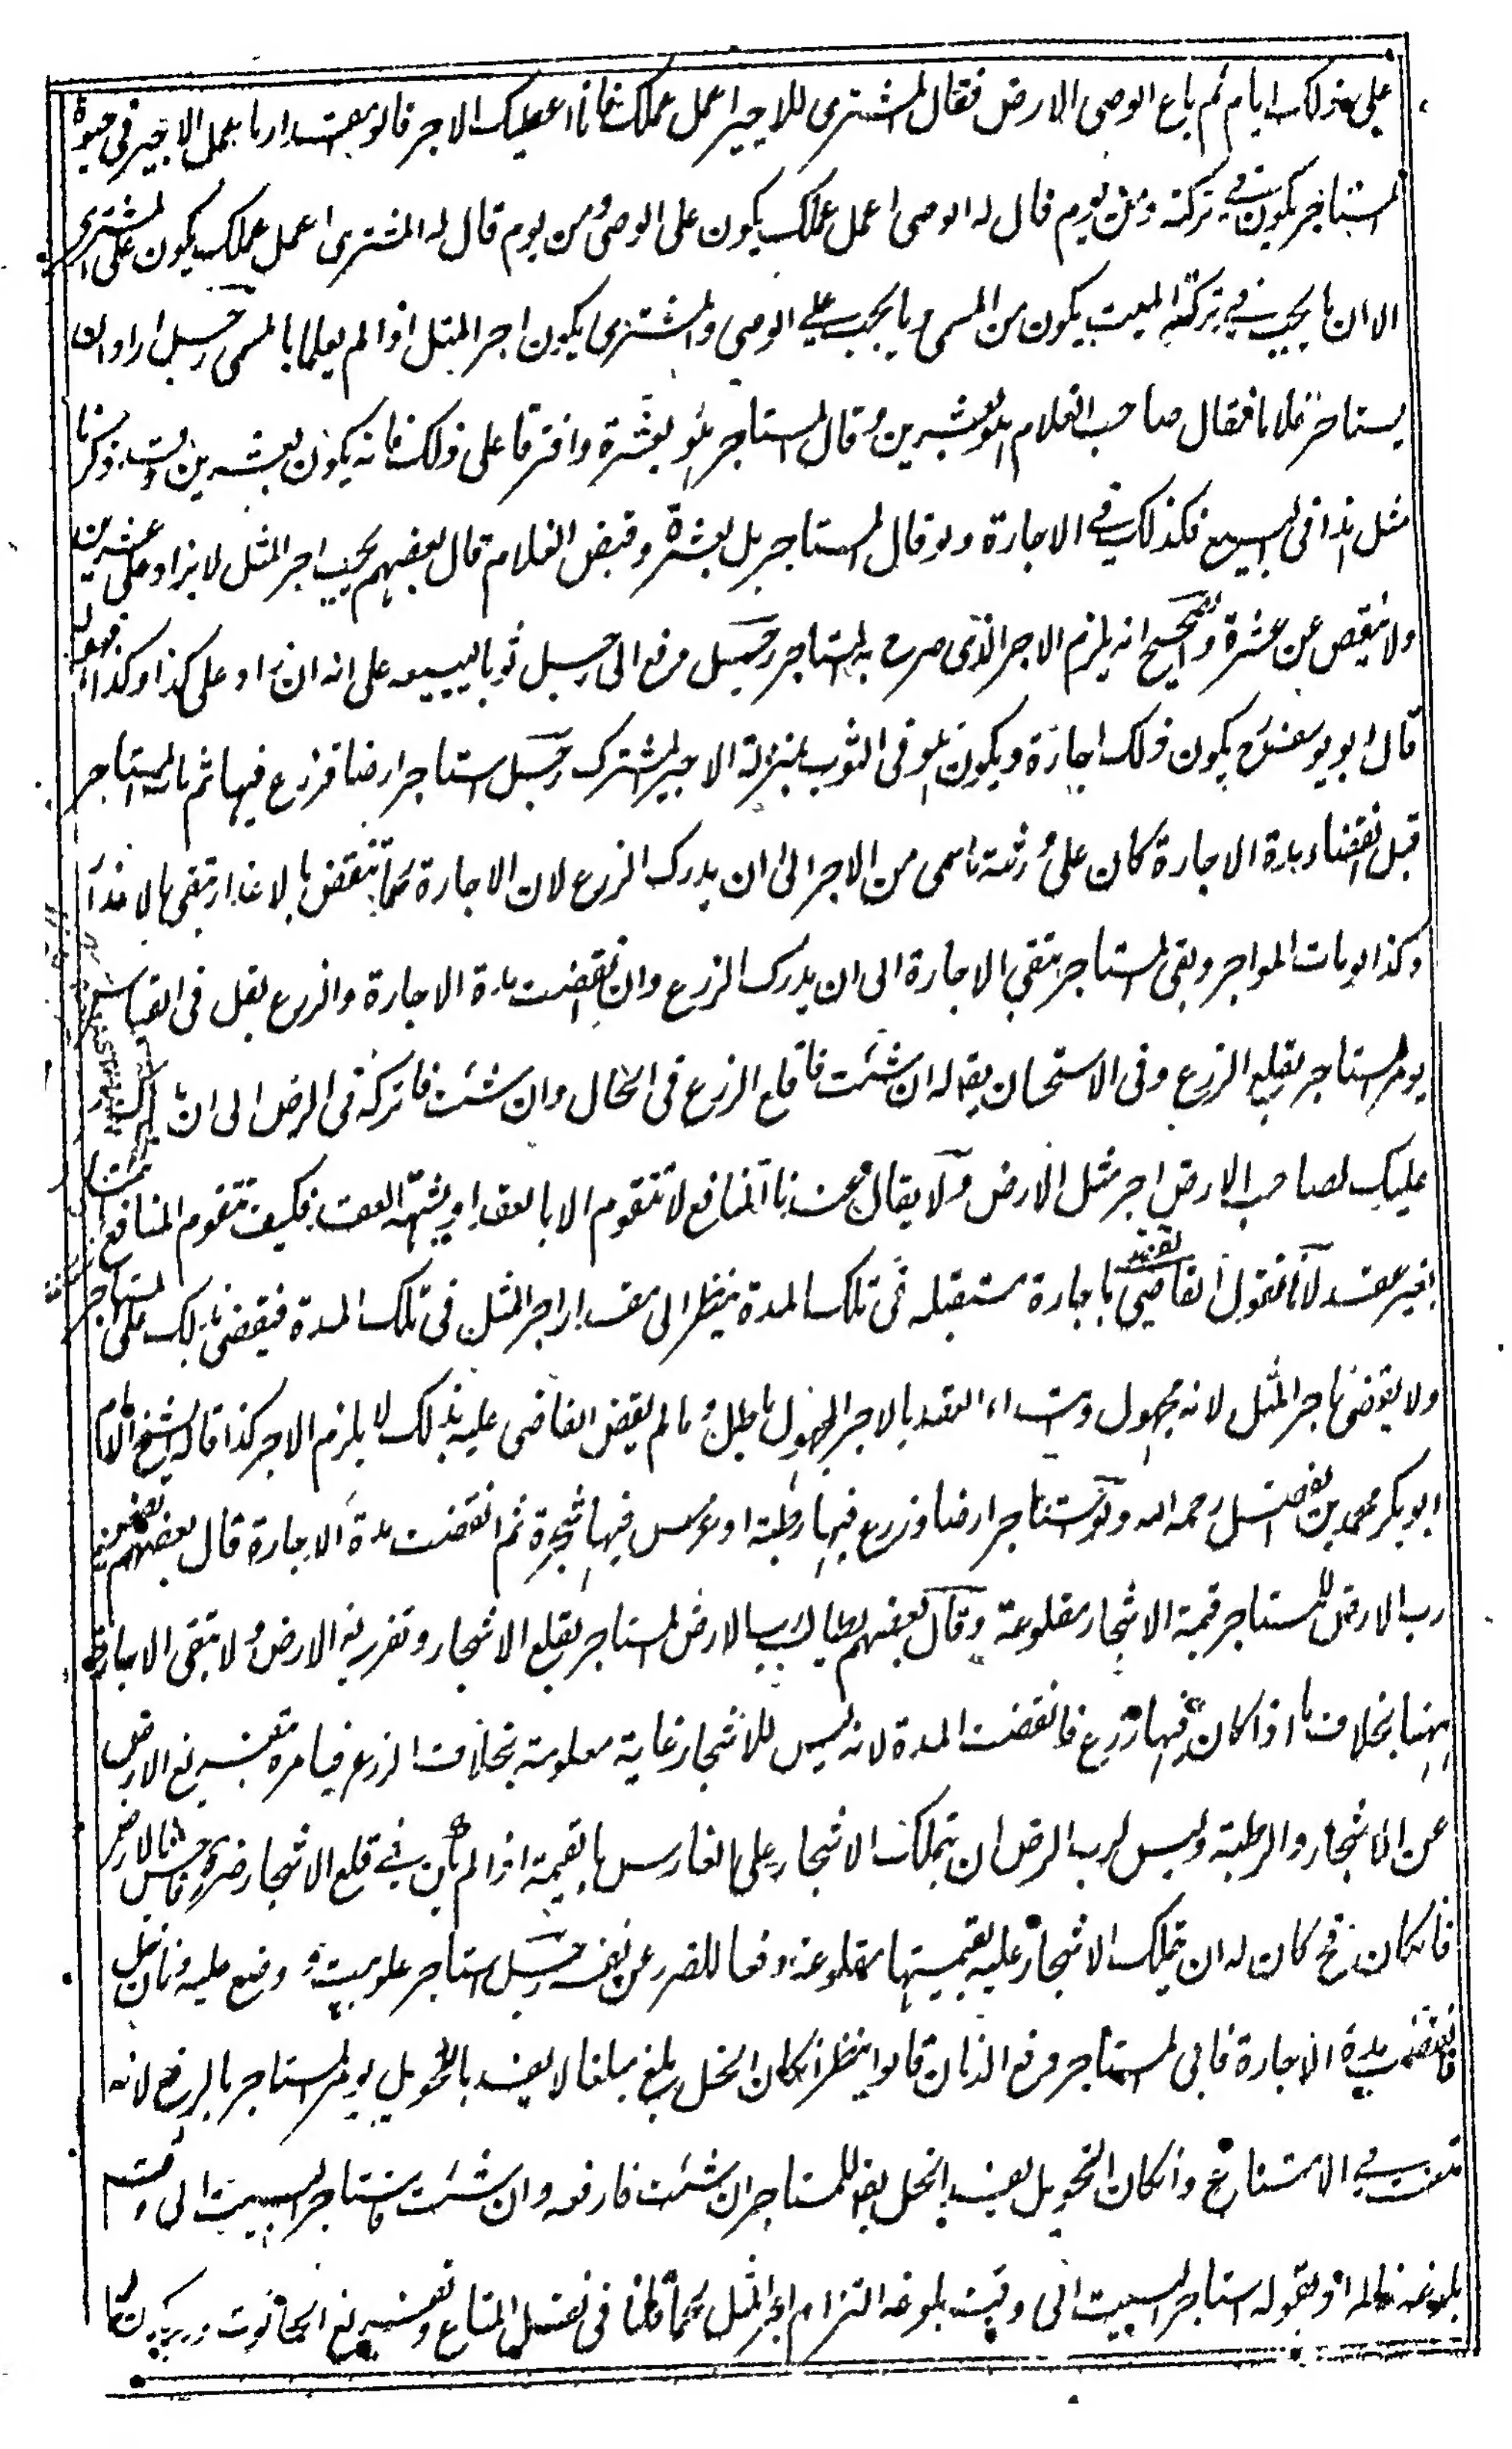 على ذلك اياما ثم باع الوصى الارض فقال المشترى للاجير اعمل عملك فانا اعطيك الاجر قالوا مقدار ما عمل الاجير فى حيوة
المستاجر يكون فى تركته ومن يوم قال له الوصى اعمل عملك يكون على الوصى ومن يوم قال له المشترى اعمل عملك يكون على المشترى
الا ان ما يجب فى تركة الميت يكون من المسمى وما يجب على الوصى والمشترى يكون اجر المثل اذا لم يعلما بالمسمى رجل اراد ان
يستاجر غلاما فقال صاحب الغلام هو بعشرين وقال المستاجر هو بعشرة وافترقا على ذلك فانه يكون بعشرين وقد ذكرنا
مثل هذا فى البيع فكذلك فى الاجارة ولو قال المستاجر بل بعشرة وقبض الغلام قال بعضهم يجب اجر المثل لا يزاد على عشرين
ولا ينقص عن عشرة والصحيح انه يلزم الاجر الذى صرح به المستاجر رجل دفع الى رجل ثوبا ليبيعه على انه ان زاد على كذا وكذا فهو له
قال ابو يوسف رح يكون ذلك اجارة ويكون هو فى الثوب بمنزلة الاجير المشترك رجل استاجر ارضا فزرع فيها ثم مات المستاجر
قبل انقضاء مدة الاجارة كان على ورثته ما سمى من الاجر الى ان يدرك الزرع لان الاجارة كما تنتقض بالاعذار تبقى بالاعذار
وكذا لو مات المواجر وبقى المستاجر تبقى الاجارة الى ان يدرك الزرع وان انقضت مدة الاجارة والزرع بقل فى القياس
يومر المستاجر بقلع الزرع وفى الاستحسان يقال له ان شئت فاقلع الزرع فى الحال وان شئت فاتركه فى الارض الى ان يدرك
عليك لصاحب الارض اجر مثل الارض ولا يقال بان المنافع لا تتقوم الا بالعقد او بشبهة العقد فكيف تتقوم المنافع
بغير عقد لانا نقول القاضى يعقد باجارة مستقبلة فى تلك المدة ينظر الى مقدار اجر المثل فى تلك المدة فيقضى بذلك على المستاجر
ولا يقضى باجر المثل لانه مجهول وابتداء العقد بالاجر المجهول باطل وما لم يقض القاضى عليه بذلك لا يلزم الاجر كذا قال الشيخ الامام
ابو بكر محمد بن الفضل رحمه الله ولو استاجر ارضا وزرع فيها رطبة او غرس فيها شجرة ثم انقضت مدة الاجارة قال بعضهم يضمن
رب الارض للمستاجر قيمة الاشجار مقلوعة وقال بعضهم يطالب رب الارض المستاجر بقلع الاشجار وتفريغ الارض ولا تبقى الاجارة
ههنا بخلاف ما اذا كان فيها زرع فانقضت المدة لانه ليس للاشجار غاية معلومة بخلاف الزرع فيامره بتفريغ الارض
عن الاشجار والرطبة وليس لرب الارض ان يتملك الاشجار على الغارس بالقيمة اذا لم يكن فى قلع الاشجار ضرر فاحش بالارض
فان كان فح كان له ان يتملك الاشجار عليه بقيمتها مقلوعة دفعا للضرر عن نفسه رجل استاجر علو بيت ووضع عليه دنان خل
فانقضت مدة الاجارة فابى المستاجر رفع الدنان قالوا ينظر ان كان الخل بلغ مبلغا لا يفسد بالتحويل يومر المستاجر بالرفع لانه
متعنت فى الامتناع وان كان التحويل يفسد الخل يقال للمستاجر ان شئت فارفعه وان شئت فاستاجر البيت الى وقت
بلوغه اراد بقوله استاجر البيت الى وقت بلوغه التزام اجر المثل كما قلنا فى نقل المتاع وتفريغ الحانوت